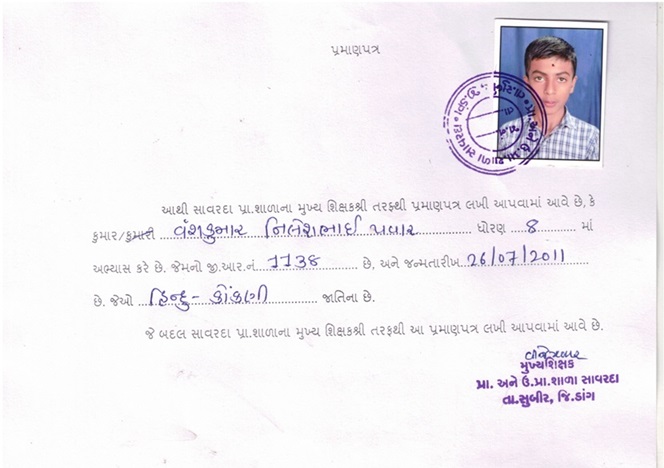 પ્રમાણપત્ર
આથી સાવરદા પ્રા.શાળાના મુખ્ય શિક્ષકશ્રી તરફથી પ્રમાણપત્ર લખી આપવામાં આવે છે, કે
કુમાર/કુમારી વંશકુમાર નિલેશભાઈ પવાર ધોરણ 8 માં
અભ્યાસ કરે છે. જેમનો જી.આર.નં 1138 છે, અને જન્મતારીખ 26/07/2011
છે. જેઓ હિન્દુ - કોંકણી જાતિના છે.
જે બદલ સાવરદા પ્રા.શાળાના મુખ્ય શિક્ષકશ્રી તરફથી આ પ્રમાણપત્ર લખી આપવામાં આવે છે.
મુખ્યશિક્ષક
પ્રા. અને ઉ.પ્રા.શાળા સાવરદા
તા.સુબીર, જિ.ડાંગ